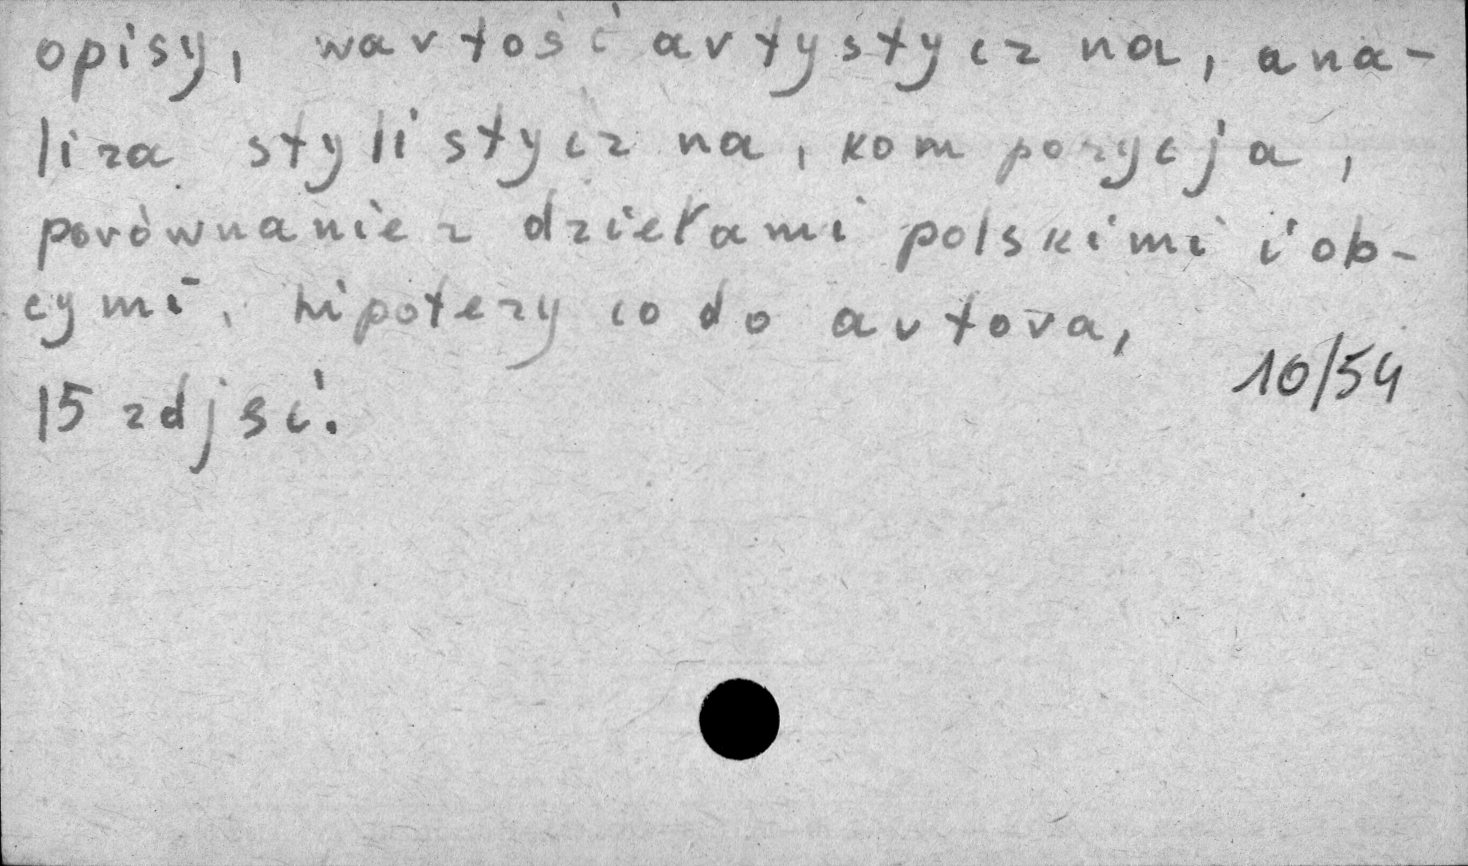 opisy, wartość artystyczna, ana-
liza stylistyczna, kompozycja,
porównanie z dziełami polskimi i ob-
cymi, hipotezy co do autora,
10/54
15 zdjęć.